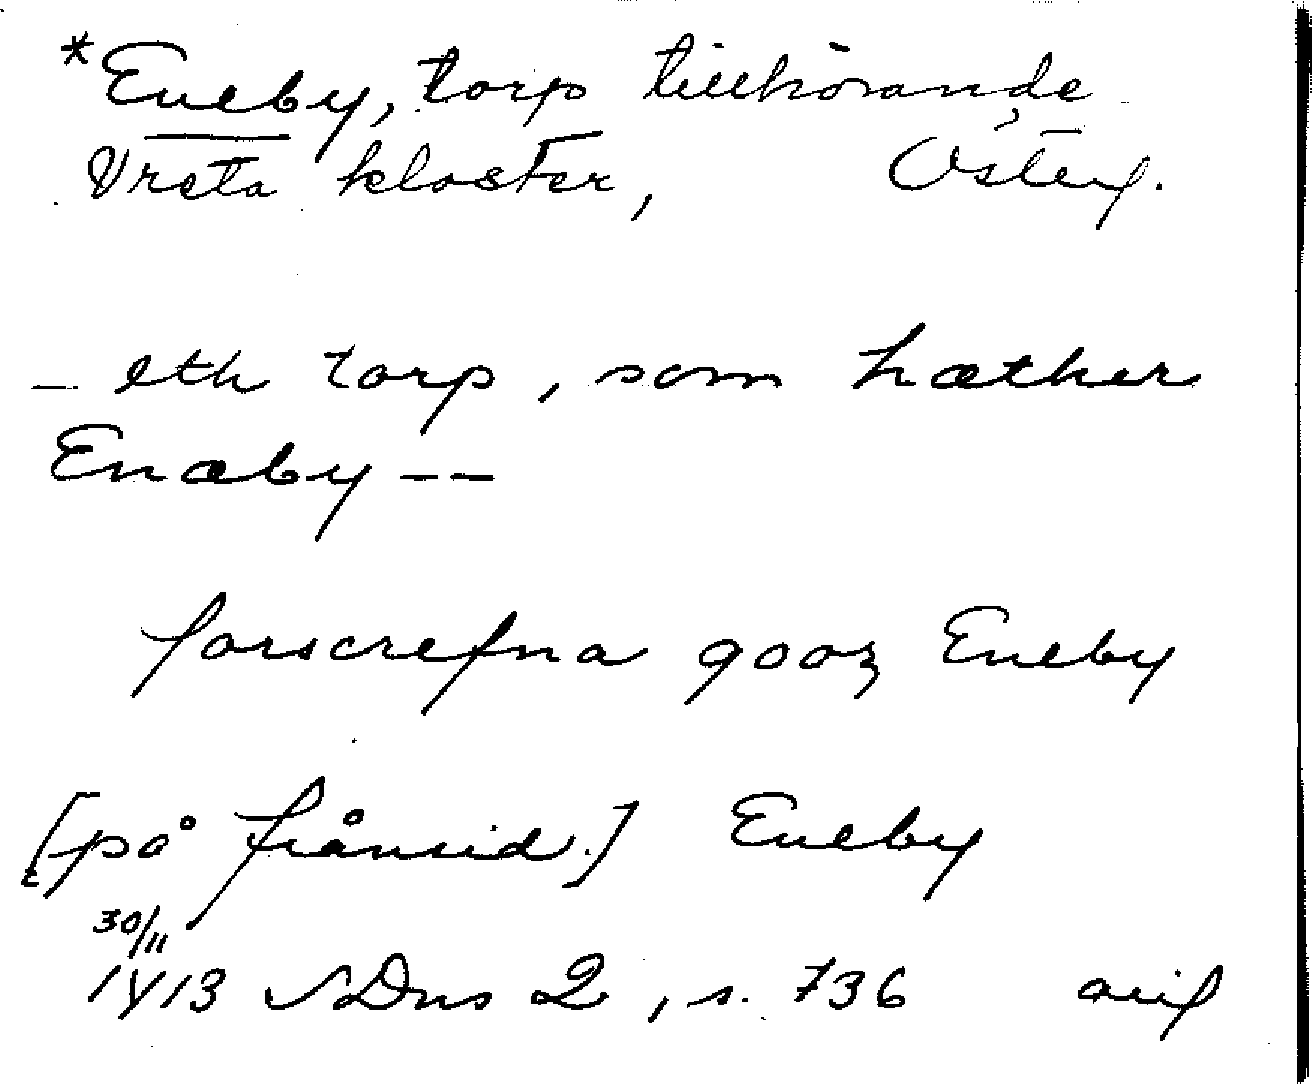 *Eneby, torp tillhörande
Vreta kloster, Österg.
– eth torp, som hæther
Enæby – –
forscrefna gooz Eneby
[på frånsid.] Eneby
30/11
1413 SDns 2, s. 736 orig